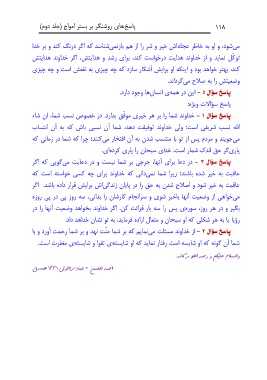 ۱۱۸ پاسخ‌های روشنگر بر بستر امواج (جلد دوم)
می‌شود، و او به خاطر عجله‌اش خیر و شر را از هم بازنمی‌شناسد که اگر درنگ کند و بر خدا
توکل نماید و از خداوند هدایت درخواست کند، برای رشد و هدایتش، اگر خداوند هدایتش
کند، بهتر خواهد بود و اینکه او برایش آشکار سازد که چه چیزی به نفعش است و چه چیزی
وضعیتش را به سلاح می‌گرداند.
پاسخ سؤال ۵ - این در همه‌ی انسان‌ها وجود دارد.
پاسخ سؤالات ویژه
پاسخ سؤال ۱ - خداوند شما را بر هر خیری موفّق بدارد. در خصوص نسب شما، ان شاء
الله نسب شریفی است؛ ولی خداوند توفیقت دهد، شما آن نسبی باش که به آن انتساب
می‌جویند و مردم پس از تو با منتسب شدن به آن افتخار می‌کنند؛ چرا که شما در زمانی که
یاری‌گر حق اندک شمار است، خدای سبحان را یاری کرده‌ای.
پاسخ سؤال ۲ - در دعا برای آنها، حرجی بر شما نیست و در دعایت می‌گویی که اگر
عاقبت به خیر شده باشند؛ زیرا شما نمی‌دانی که خداوند برای چه کسی خواسته است که
عاقبت به خیر شود و اصلاح شدن به حق را در پایان زندگی‌اش برایش قرار داده باشد. اگر
می‌خواهی از وضعیت آنها باخبر شوی و سرانجام کارشان را بدانی، سه روز پی در پی روزه
بگیر و در هر روز، سوره‌ی یس را سه بار قرائت کن. اگر خداوند بخواهد وضعیت آنها را در
رؤیا یا به هر شکلی که او سبحان و متعال اراده فرماید، به تو نشان خواهد داد.
پاسخ سؤال ۳ - از خداوند مسئلت می‌نمایم که بر شما منّت نهد و بر شما رحمت آورد و با
شما آن گونه که او شایسته است رفتار نماید که او شایسته‌ی تقوا و شایسته‌ی مغفرت است.
والسلام علیکم و رحمة الله و برکاته